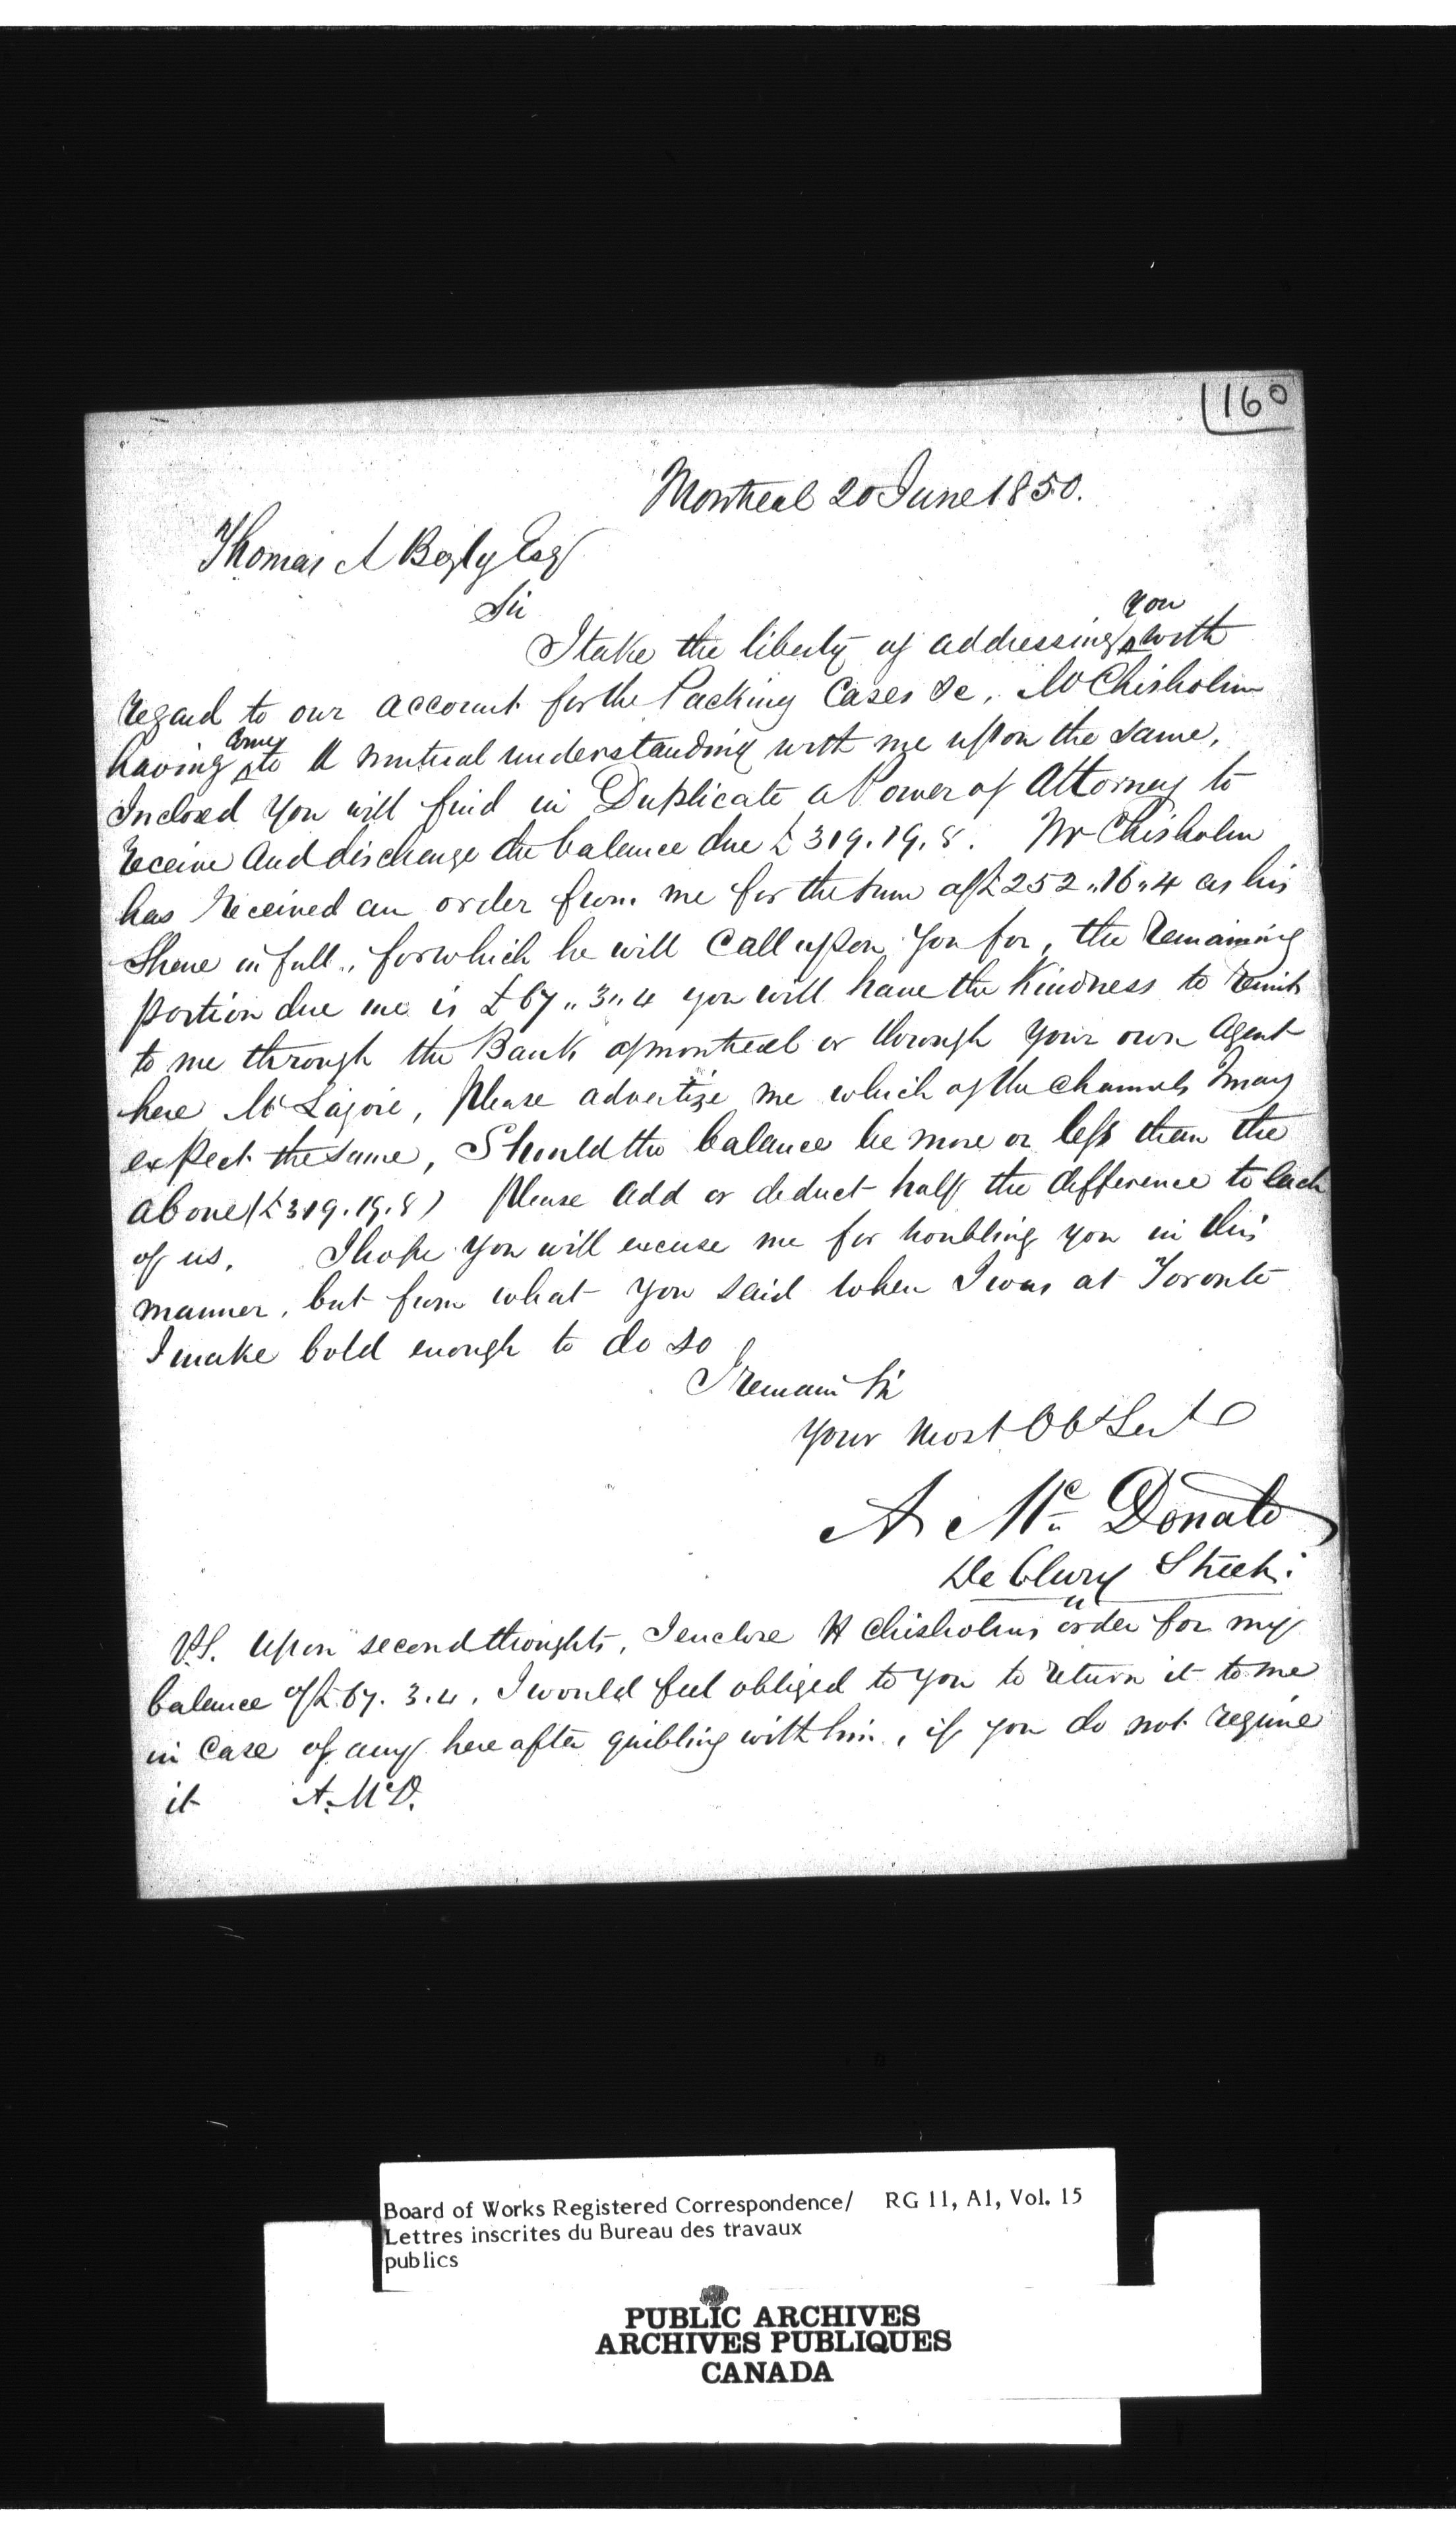 1160
Montreal 20 June 1850.
Thomas A Begly Esqr
Sir
I take the liberty of addressing you with
regard to our account for the Packing Cases &c, Mr Chisholm
having come to a mutual understanding with me upon the same,
Inclosed you will find in Duplicate a Power of Attorney to
receive and discharge the balance due £319.19.8. Mr Chisholm
has received an order from me for the sum of £252„16„4 as his
Share in full„ for which he will Call upon you for, the remaining
portion due me is £67„3„4 you will have the Kindness to remit
to me through the Bank of montreal or through your own Agent
here Mr Lajoie, Please advertize me which of the channels I may
expect the same, Should the balance be more or less than the
above (£319.19.8) Please add or deduct half the difference to each
of us. I hope you will excuse me for troubling you in this
manner, but from what you said when I was at Toronto
I make bold enough to do so
I remain Sir
Your most Obt Servt
A. McDonald
De Bleury Street.
P.S. Upon second thoughts, I enclose Mr Chisholms order for my
balance of £67.3.4. I would feel obliged to you to return it to me
in case of any here after quibling with him, if you do not require
it A. McD.
Board of Works Registered Correspondence/ RG 11, A1, Vol. 15
Lettres inscrites du Bureau des travaux
publics
PUBLIC ARCHIVES
ARCHIVES PUBLIQUES
CANADA